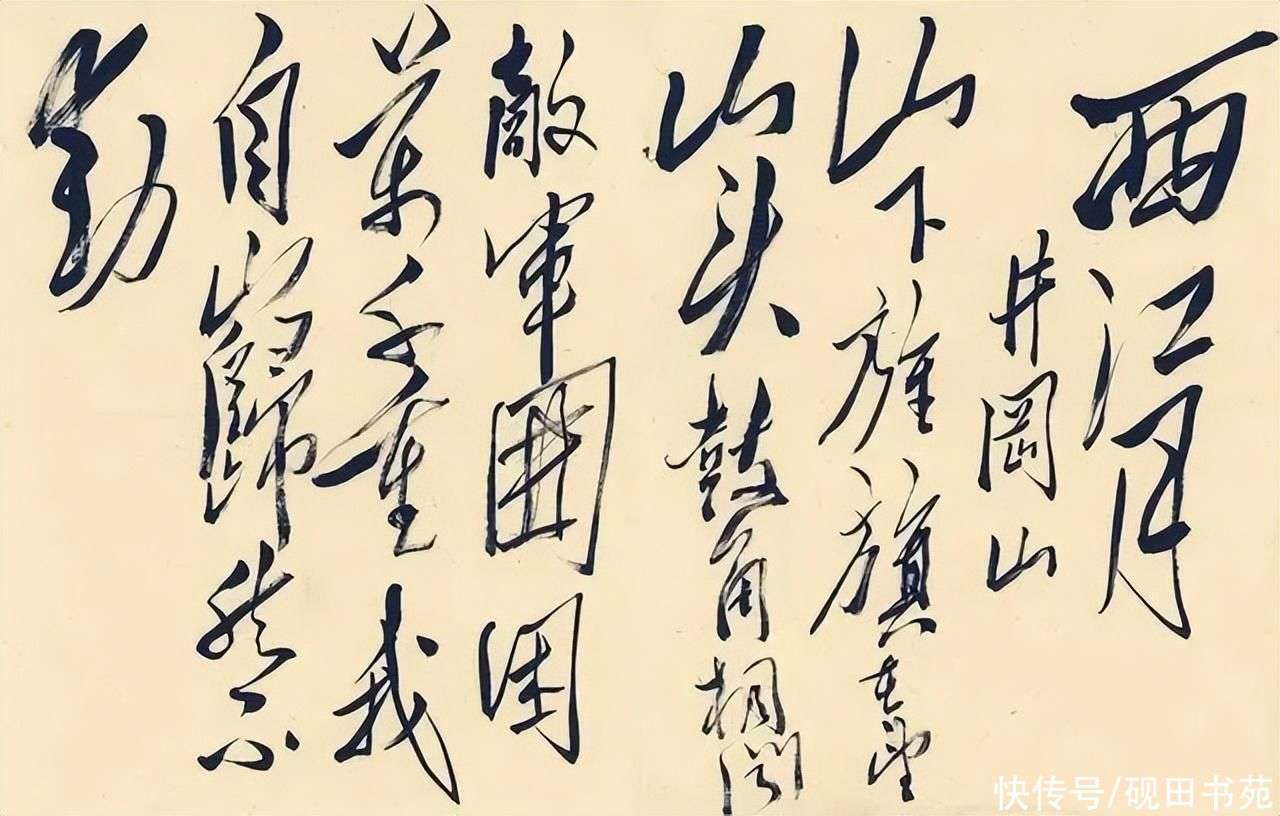 西江月
井岡山
山下旌旗在望
山头鼓角相闻
敵軍圍困
萬千重我
自巋然不
動
快传号/砚田书苑